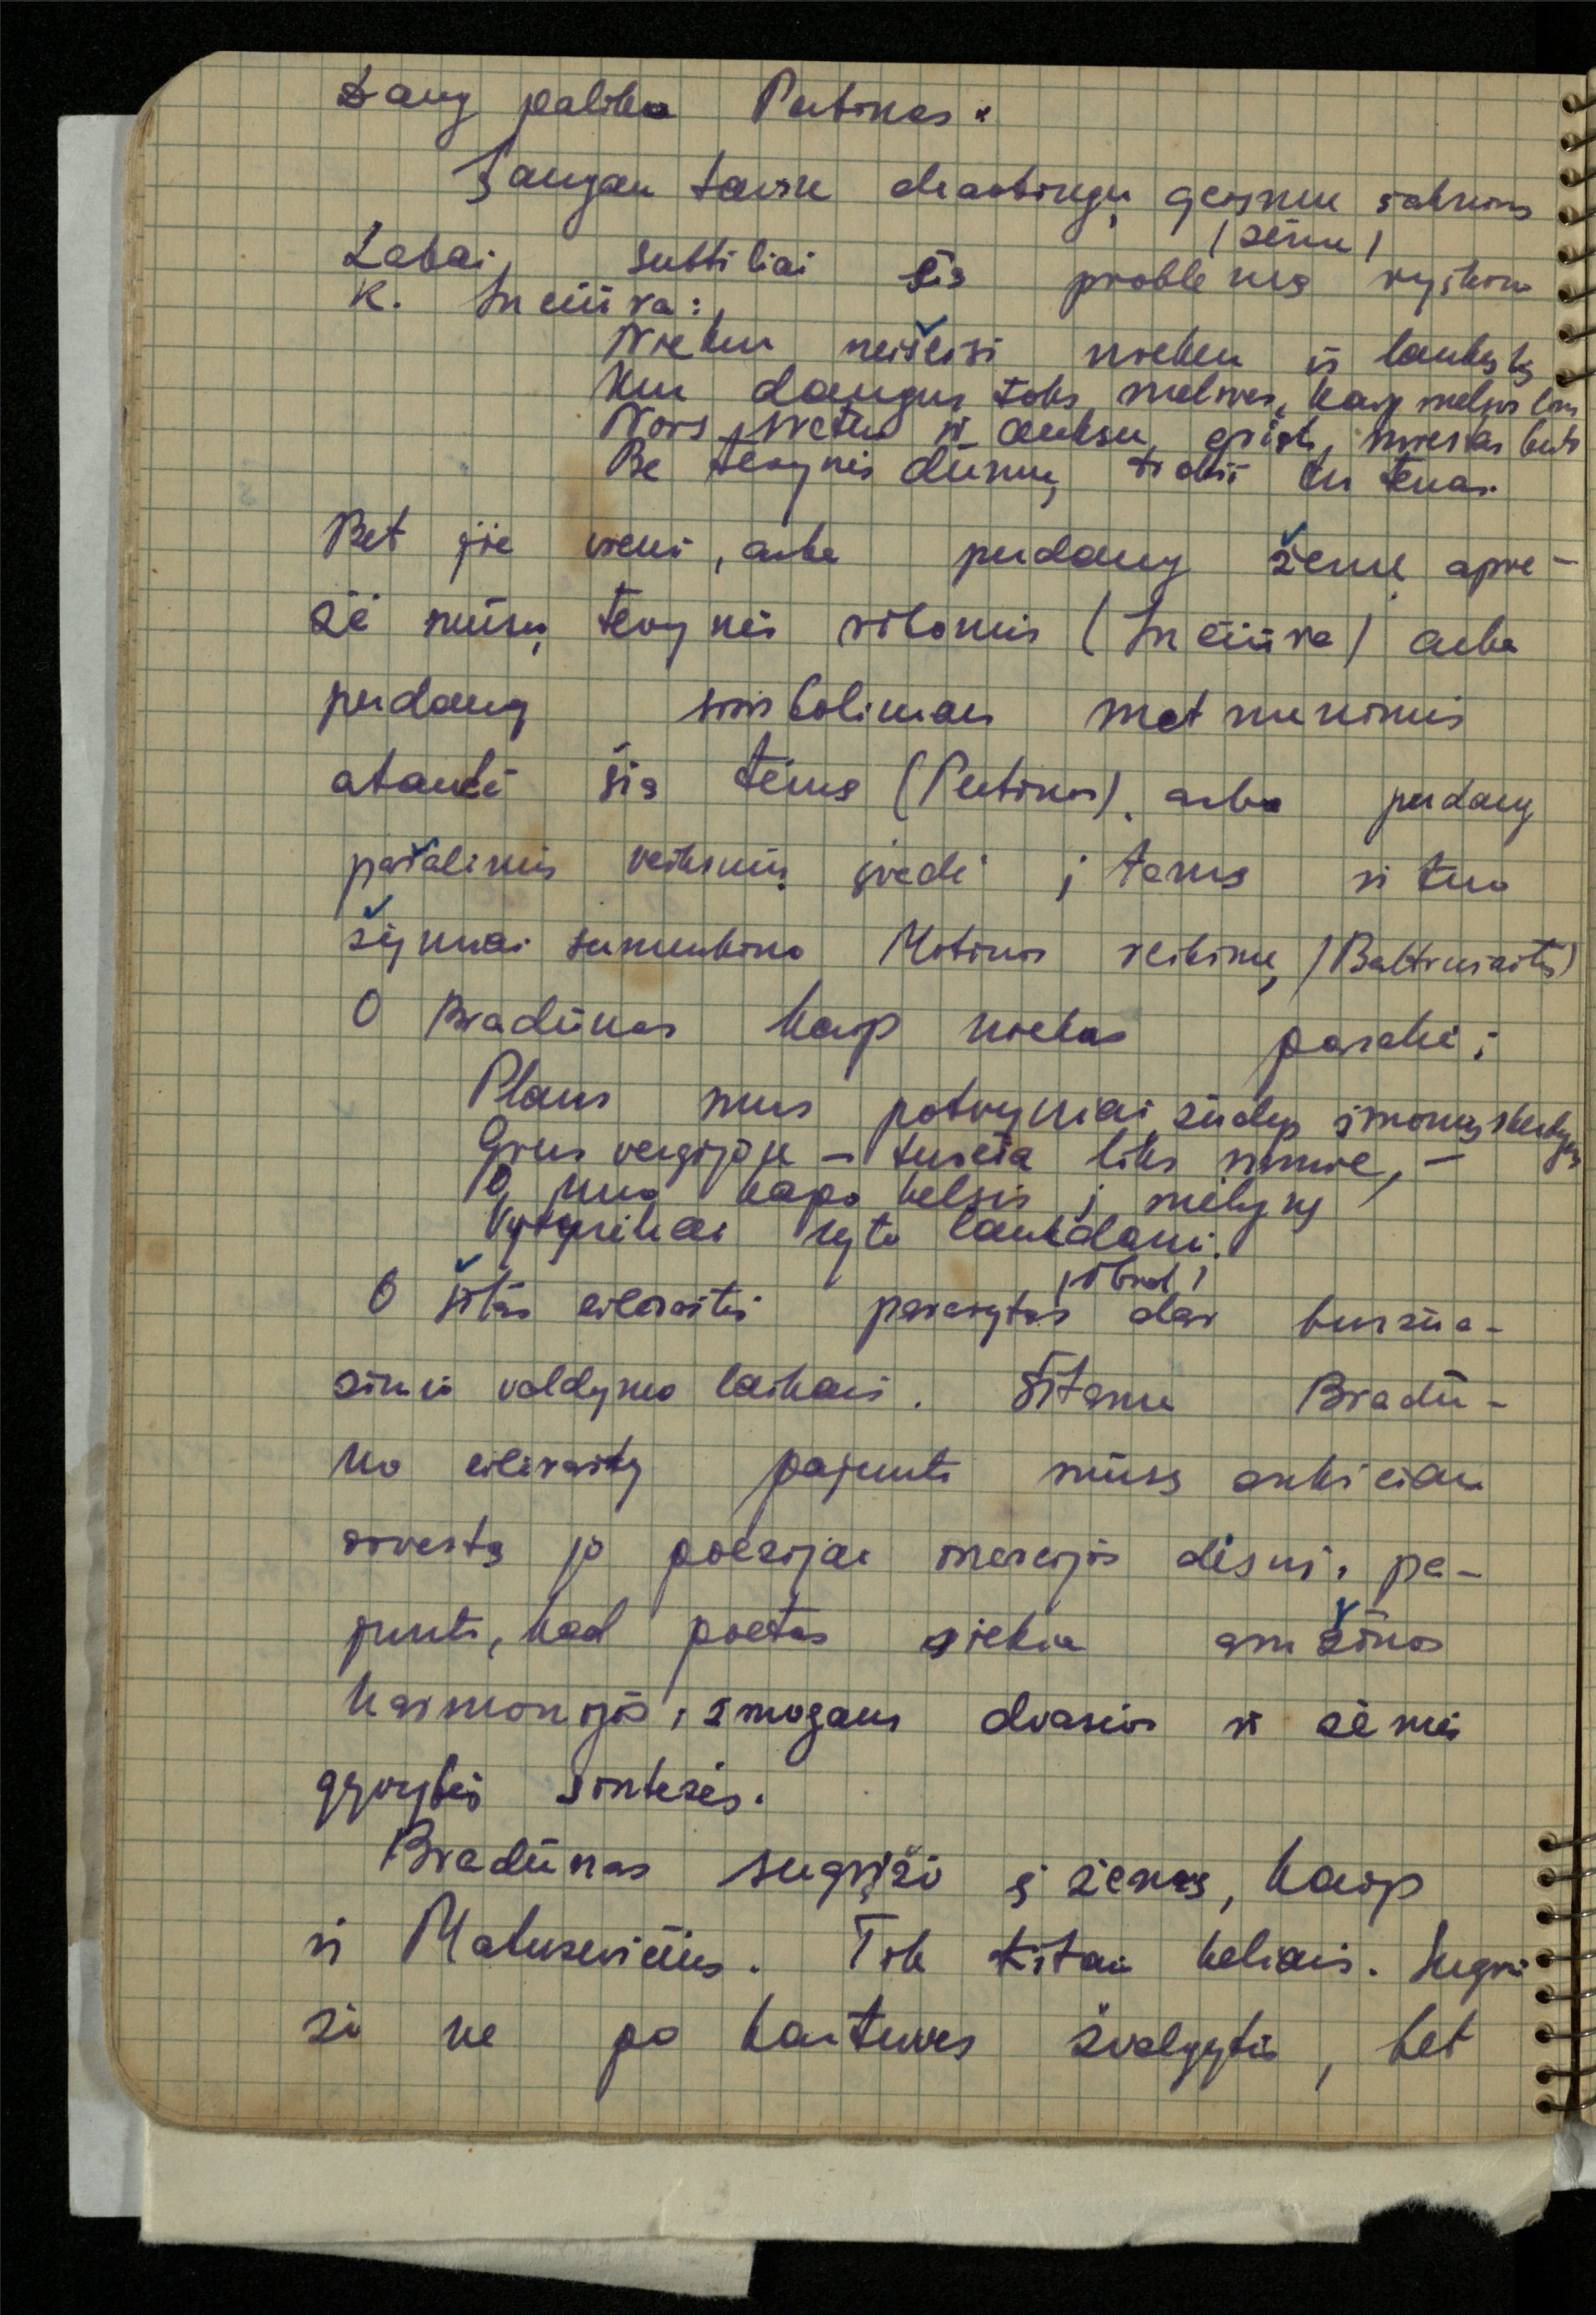 Daug paliko Putinas.
Saugau tavire drautingų geismų šaknims
/žeme/
Labai subtiliai šią problemą ryškino
K. Inčiūra:
Niekur neišeisi niekur iš laukų tų
Kur dangus toks mėlynas, kaip mėlyni linai
Nors svetur ir auksu grįsti miestai būtų
Be tėvynės dūmų, trokši tu tenai.
Bet jie vieni, arba perdaug žemę aprė-
žė mūsų tėvynės ribomis (Inčiūra) arba
perdaug simboliniais metmenimis
ataudė šią temą (Putinas), arba perdaug
pašalinių veiksnių įvedė į temą ir tuo
žymiai sumenkino Motinos reikšmę (Baltrušaitis)
O Bradūnas kaip niekas pasakė:
Plaus mus potvyniai, žudys žmonių
Grius vergijoje – tuščia liks minia, –
O nuo kapo kelsis į mėlynę
Vyturėliai ryto laukdami.
O šitas eilėraštis parašytas dar buržua-
zinio valdymo laikais. Šitame Bradū-
no eilėrašty pajunti mūsų anksčiau
išvestą jo poezijai inercijos dėsnį, pa-
junti, kad poetas siekia amžinos
harmonijos, žmogaus dvasios ir žemės
gyvybės sintezės.
Bradūnas sugrįžo į žemę, kaip
ir Matuzevičius. Tik kitais keliais. Sugrį
žo ne po kartuves žvalgytis, bet